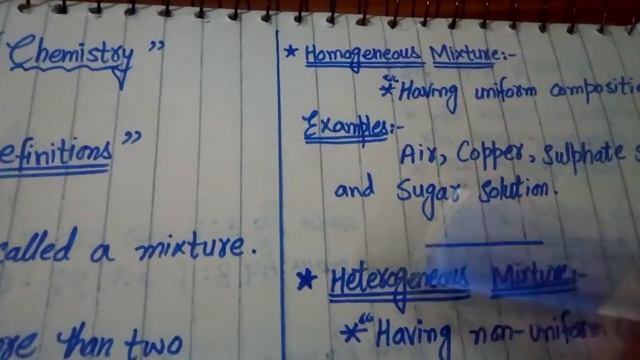 Chemistry"
efinitions"
called a mixture.
ore than two
* Homogeneous Mixture:-
*"Having uniform compositio
Examples:-
Air, Copper, Sulphate s
and Sugar solution.
* Heterogeneous Mixture:-
*"Having non-uniform